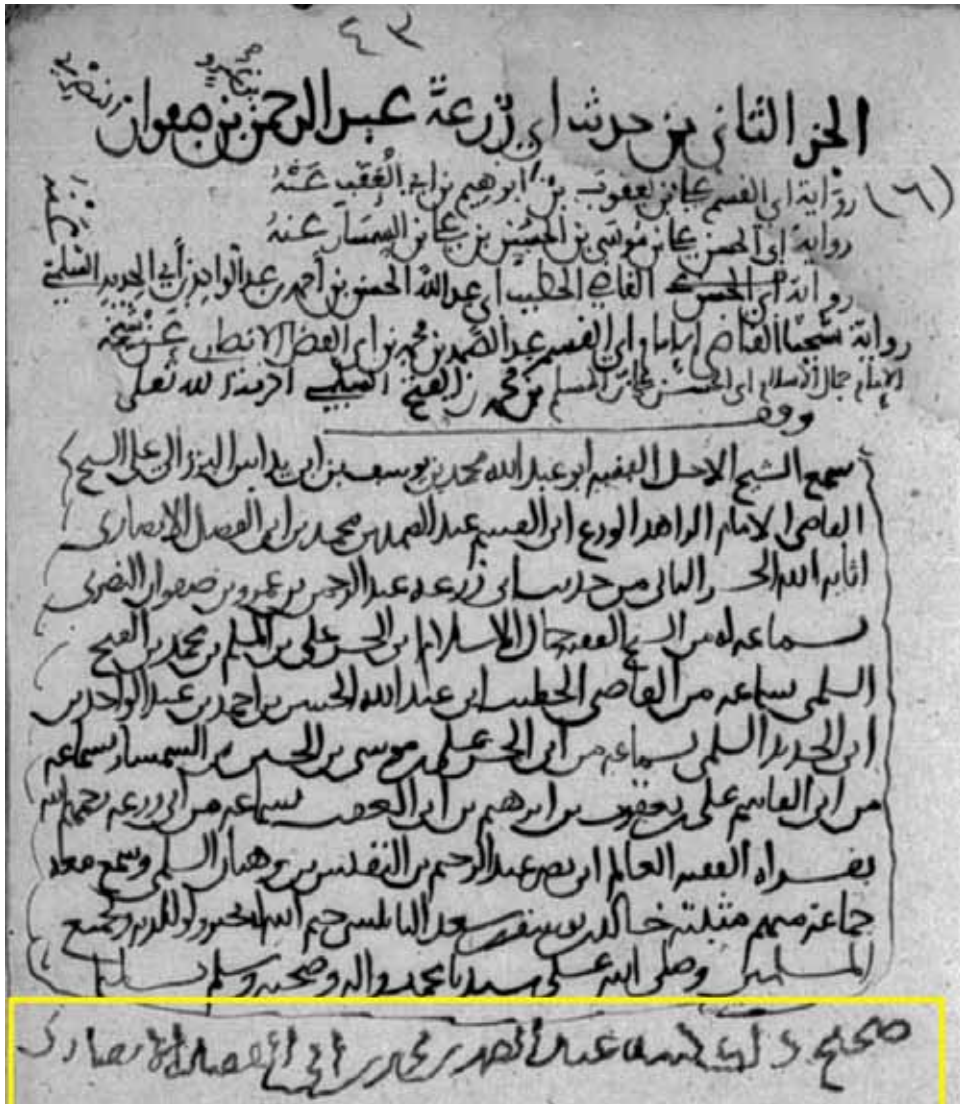 ٤٣
الجزء الثاني من حديث ابي زرعة عبد الرحمن بن عمرو بن صفوان النصري
(٦) رواية ابي القسم علي بن يعقوب بن ابرهيم بن ابي العقب عنه
رواية ابي الحسن علي بن موسى بن الحسين بن علي بن السمسار عنه
رواية القاضي الخطيب ابي عبد الله الحسن بن أحمد بن عبد الواحد بن أبي الحديد السلمي عنه
رواية شيخنا القاضي الامام ابي القسم عبد الصمد بن محمد بن ابي الفضل الانصاري عن شيخه
الامام جمال الاسلام ابي الحسن علي بن المسلم بن محمد بن الفتح السلمي الله تعلى
وقف
سمع الشيخ الاجل الفقيه ابو عبد الله محمد بن يوسف بن البرزالي على الشيخ
القاضي الامام الزاهد الورع ابي القسم عبد الصمد بن محمد بن ابي الفضل الانصاري
اثابه الله الجزء الثاني من حديث ابي زرعه عبد الرحمن بن عمرو بن صفوان النصري
بسماعه له من الشيخ الفقيه جمال الاسلام ابي الحسن علي بن المسلم بن محمد بن الفتح
السلمي بسماعه من القاضي الخطيب ابي عبد الله الحسن بن احمد بن عبد الواحد بن
ابي الحديد السلمي بسماعه من ابي الحسن علي بن موسى بن الحسين بن السمسار بسماعه
من ابي القاسم علي بن يعقوب بن ابرهيم بن ابي العقب بسماعه من ابي زرعه رحمهم الله
بقراه الفقيه العالم ابي نصر عبد الرحيم بن النفيس بن وهبان السلمي وسمع معه
جماعة منهم مثبته خالد بن يوسف بن سعد النابلسي ولوالديه ولجميع
المسلمين وصلى الله على سيدنا محمد واله وصحبه وسلم تسليما
صحيح ذلك كتبه عبد الصمد بن محمد بن أبي الفضل الانصاري